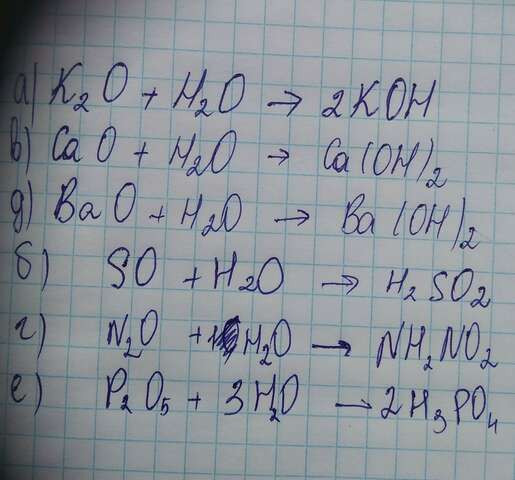 а) K₂O + H₂O → 2KOH
в) CaO + H₂O → Ca(OH)₂
д) BaO + H₂O → Ba(OH)₂
б) SO + H₂O → H₂SO₂
г) N₂O + H₂O → NH₂NO₂
е) P₂O₅ + 3H₂O → 2H₃PO₄